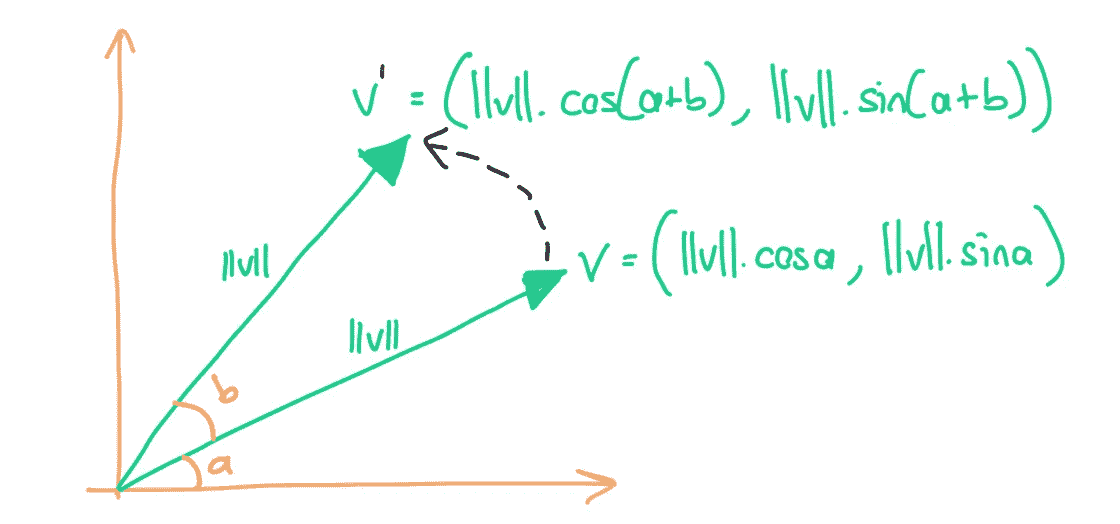 v' = (||v||. cos(a+b), ||v||. sin(a+b))
v = (||v||. cosa, ||v||. sina)
||v||
||v||
b
a